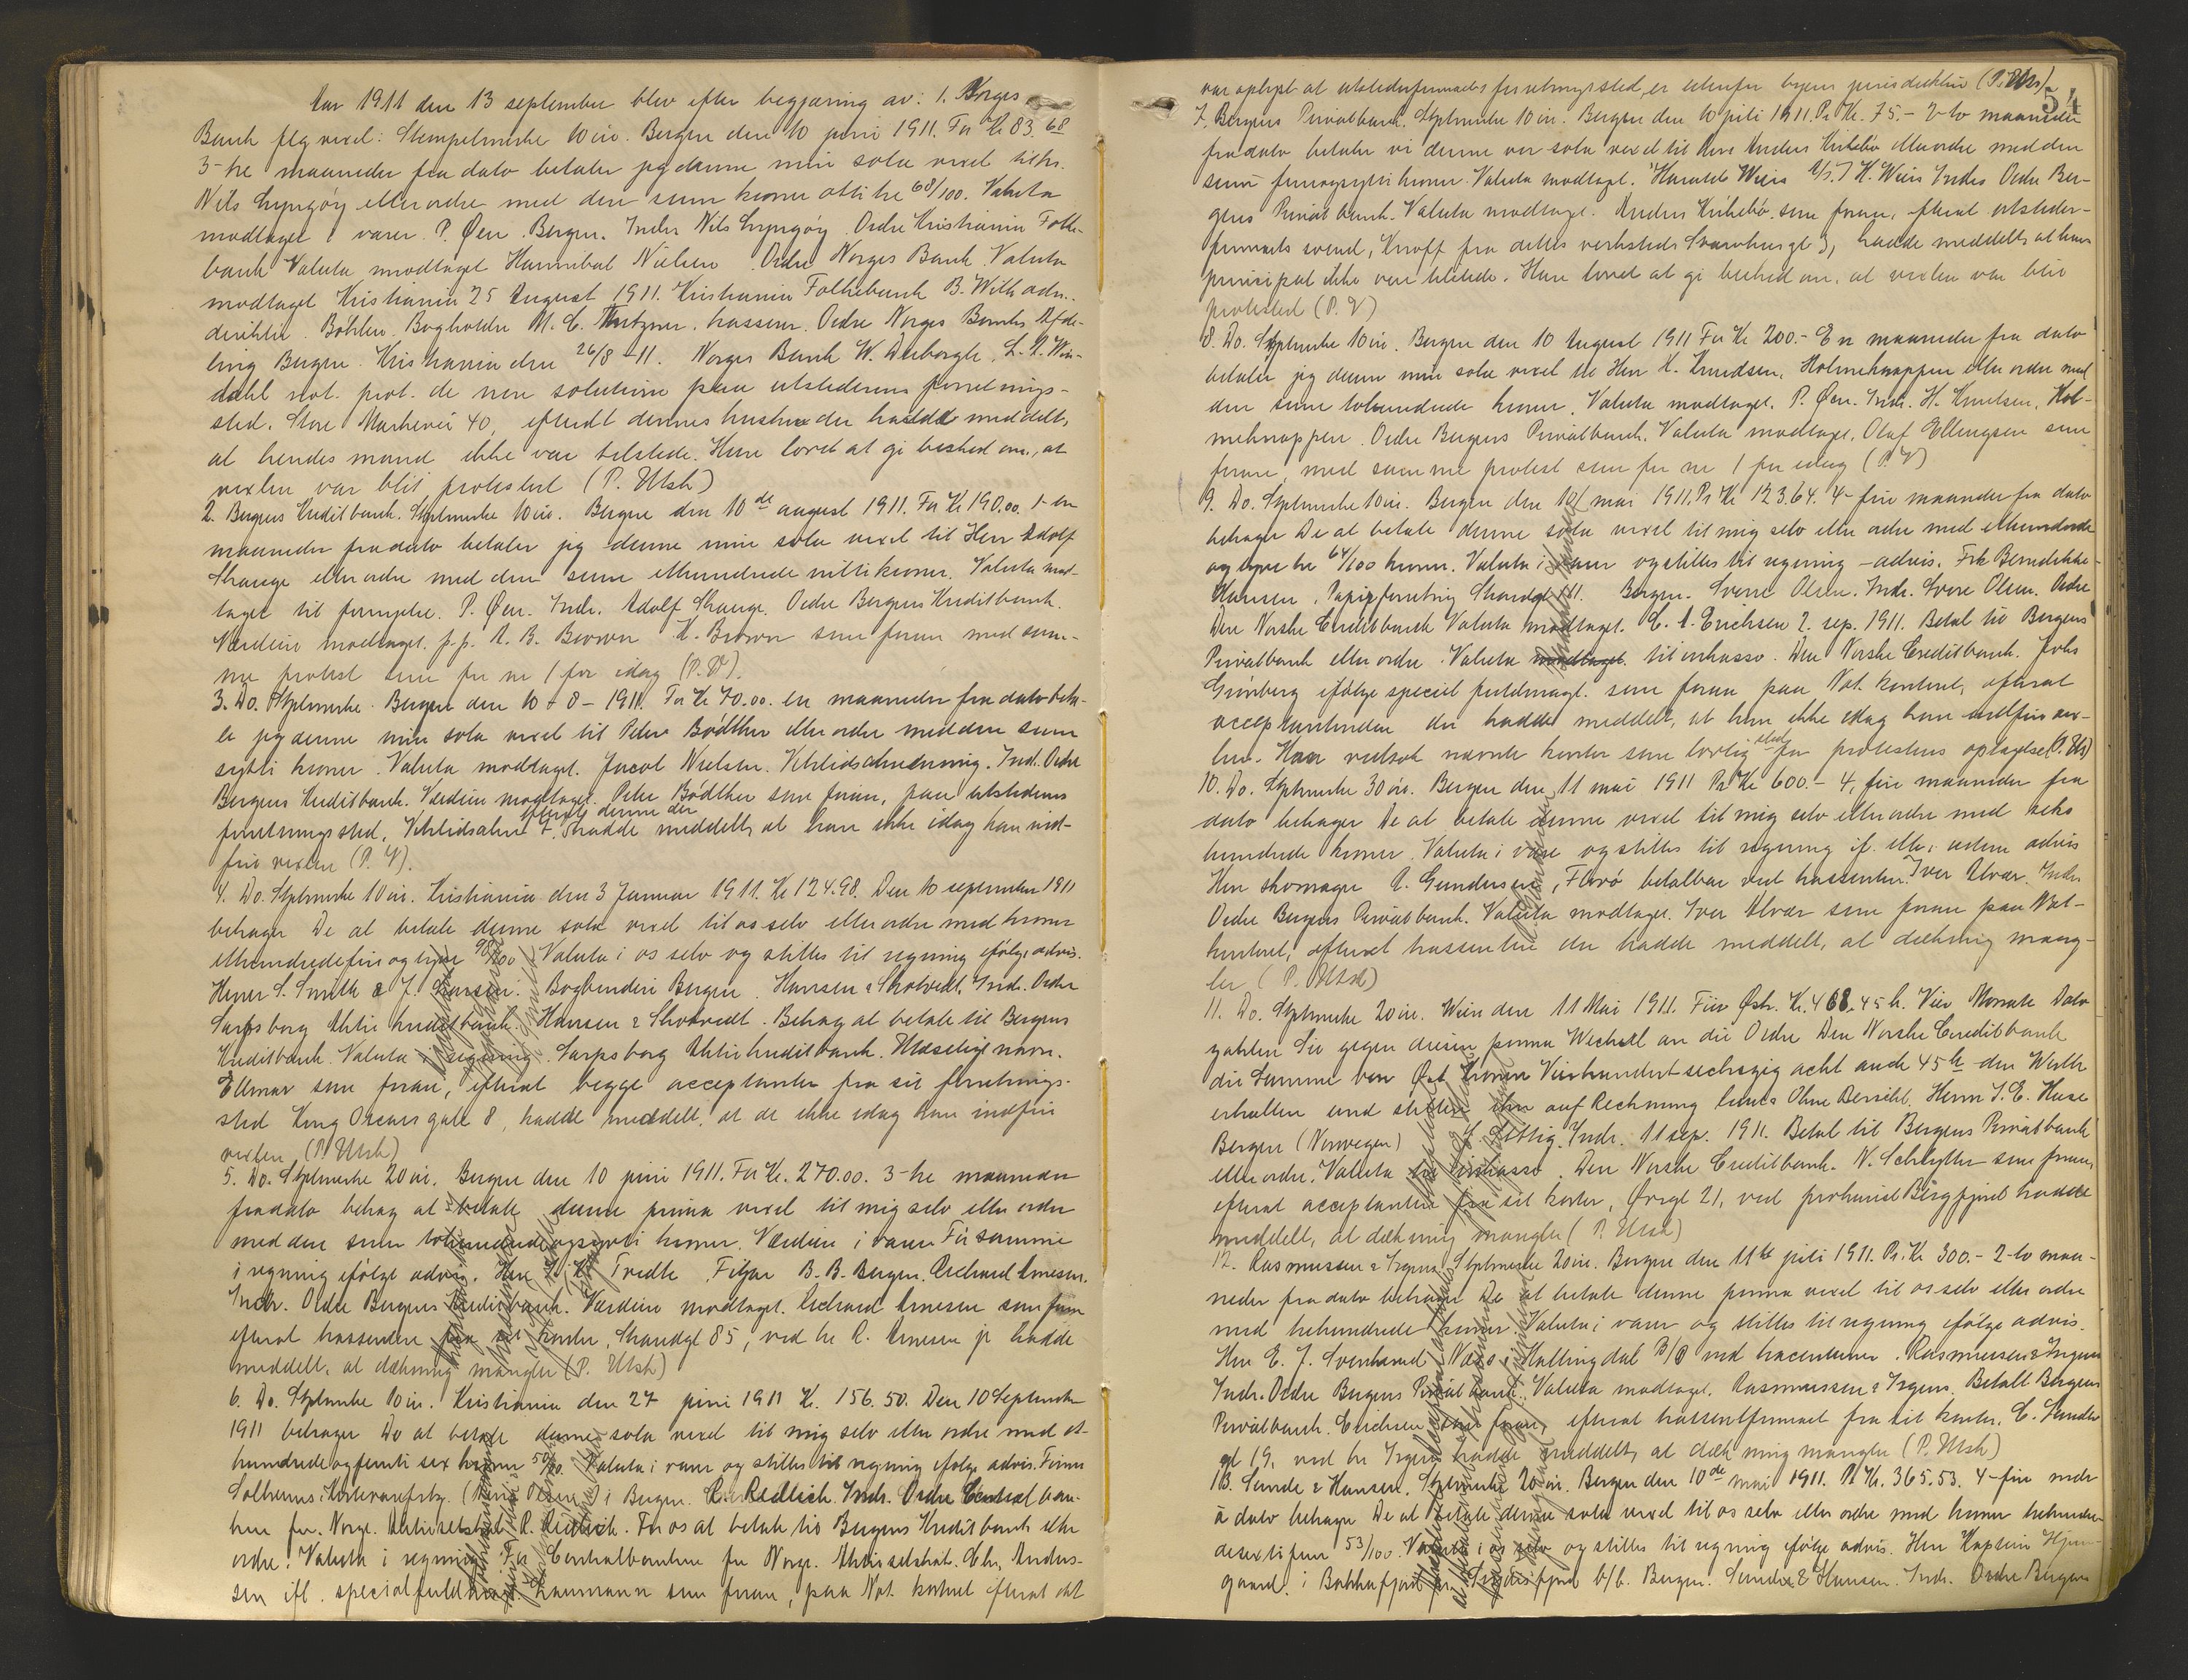 Aar 1911 den 13 september blev efter begjæring av: 1. Norges
Bank flg vexel: Stempelmerke 10 øre. Bergen den 10 juni 1911. For Kr 83.68
3-tre maaneder fra dato betaler jeg denne min sola vexel til hr.
Nils Lyngöy eller ordre med den sum kroner otti tre 68/100. Valuta
modtaget i varer. P. Øen. Bergen. Indr Nils Lyngöy. Ordre Kristiania Folke-
bank Valuta modtaget Hannibal Nielsen Ordre Norges Bank Valuta
modtaget Kristiania 25 August 1911. Kristiania Folkebank B. With adm.
direktör. Böhler. Bogholder M. C. kasserer. Ordre Norges Banks Afde-
ling Bergen. Kristiania den 26/8 - 11. Norges Bank W. L. A. Win-
dahl not. prot. de non solutione paa utstederens forretnings-
sted. Store Markevei 40, efterat dennes hustru der hadde meddelt,
at hendes mand ikke var tilstede. Hun lovet at gi besked om, at
vexlen var blit protestert (P. Utsk)
2. Bergens Kreditbank. Stplmerke 10 øre. Bergen den 10de august 1911. For Kr 190.00 1-en
maaneder fra dato betaler jeg denne min sola vexel til Herr Adolf
Skauge eller ordre med den sum etthundrede nitti kroner. Valuta mod-
taget til fornyelse. P. Øen. Indr. Adolf Skauge. Ordre Bergens Kreditbank.
Værdien modtaget. p.p. A. B. Brown K. Brown som foran med sam-
me protest som for no 1 for idag (P. V).
3. Do. Stplmerke. Bergen den 10 - 8 - 1911. For Kr 70.00. en maaneder fra dato beta-
ler jeg denne min sola vexel til Peter Bödtker eller ordre med den sum
sytti kroner. Valuta modtaget. Jacob Nielsen. Vetrlidsalmenning. Indr. Ordre
Bergens Kreditbank. Værdien modtaget. Peter Bödtker som foran, paa utstederens
efterat denne der
forretningssted, Vetrlidsalm 7. hadde meddelt, at han ikke idag kan ind-
fri vexlen (P. V).
4. Do. Stplmerke 10 øre. Kristiania den 3 Januar 1911. Kr 124.98. Den 10 september 1911
behager De at betale denne sola vexel til os selv eller ordre med kroner
etthundredefire og tyve 98/100 Valuta i os selv og stilles til regning ifölge advis.
Herrer S. Smith & J. Larsen. Bogbinderi Bergen. Hansen & Skotvedt. Indr. Ordre
Sarpsborg Aktie kreditbank. Hansen & Skotvedt. Behag at betale til Bergens
Kreditbank. Valuta i regning. Sarpsborg Aktie kreditbank. Ulæseligt navn.
Ellmar som foran, efterat begge acceptanter fra sit forretnings-
sted Kong Oscars gate 8, hadde meddelt, at de ikke idag kan indfri
vexlen (P. Utsk)
5. Do. Stplmerke 20 øre. Bergen den 10 juni 1911. For Kr. 270.00. 3-tre maaneder
fra dato behag at betale denne prima vexel til mig selv eller ordre
med den sum tohundredeogsytti kroner. Værdien i varer. För samme
i regning ifölge advis. Herr Tvedte Fitjar B. B. Bergen. Richard Arnesen.
Indr. Ordre Bergens Kreditbank. Værdien modtaget. Richard Arnesen som foran
efterat trassenten fra sit kontor, Strandgt 85, ved hr R. Arnesen jr hadde
meddelt, at dækning mangler (P. Utsk)
6. Do. Stplmerke 10 øre. Kristiania den 27 juni 1911 K. 156.50. Den 10 September
1911 behager De at betale denne sola vexel til mig selv eller ordre med et-
hundredeogfemti sex kroner 50/100. Valuta i varer og stilles til regning ifölge advis. Firma
Solheims i Bergen. R. Redlich. Indr. Ordre Central ban-
ken for Norge. Aktieselskab R. Redlich. For os at betale til Bergens Kreditbank eller
ordre. Valuta i regning. For Centralbanken for Norge. Aktieselskab. Chr. Anders-
sen ifl. specialfuldmagt. Laumann som foran, paa Not. kontoret efterat det
54
var oplyst at utstederfirmaets forretningssted er utenfor byens jurisdiktion (P. Uts)
7. Bergens Privatbank. Stplmerke 10 øre. Bergen den 10 juli 1911. Pr Kr. 75.- 2-to maaneder
fra dato betaler vi denne vor sola vexel til Herr Anders Kirkebö eller ordre med den
sum femogsytti kroner. Valuta modtaget. Harald Weis A/S. H. Weis Indr Ordre Ber-
gens Privatbank. Valuta modtaget. Anders Kirkebö som foran, efterat utsteder-
firmaets svend, Knoff fra dettes verksted Skarvhusgt 3, hadde meddelt, at hans
prinsipal ikke var tilstede. Han lovet at gi besked om, at vexlen var blit
protestert (P. V)
8. Do. Stplmerke 10 øre. Bergen den 10 August 1911 For Kr 200.- En maaneder fra dato
betaler jeg denne min sola vexel til Herr K. Knudsen, Holmeknappen eller ordre med
den sum tohundrede kroner. Valuta modtaget. P. Øen. Indr. H. Knutsen, Hol-
meknappen. Ordre Bergens Privatbank. Valuta modtaget. Olaf Ellingsen som
foran, med samme protest som for no 1 for idag (P. V)
9. Do. Stplmerke 10 øre. Bergen den 10 mai 1911. Pr Kr 123.64. 4-fire maaneder fra dato
behager De at betale denne sola vexel til mig selv eller ordre med etthundrede
og tyve tre 64/100 kroner. Valuta i varer og stilles til regning - advis. Frk Benedikte
Hansen, Papirforretning Strandgt Bergen. Sverre Olsen. Indr. Sverre Olsen. Ordre
Den Norske Creditbank Valuta modtaget. C. A. Erichsen 2. sep. 1911. Betal til Bergens
Privatbank eller ordre. Valuta modtaget til inkasso. Den Norske Creditbank. Johs
Grönberg ifölge speciel fuldmagt. som foran paa Not. kontoret, efterat
acceptantinden der hadde meddelt, at hun ikke idag kan indfri vex-
len. Hun vedtok nævnte kontor som lovlig sted for protestens optagelse (P. Uts)
10. Do. Stplmerke 30 øre. Bergen den 11 mai 1911 Pr Kr 600.- 4, fire maaneder fra
dato behager De at betale denne vexel til mig selv eller ordre med seks
hundrede kroner. Valuta i vare og stilles til regning if. eller uden advis
Herr skomager A. Gundersen, Florö betalbar ved trassenten. Iver Alvær. Indr.
Ordre Bergens Privatbank. Valuta modtaget. Iver Alvær som foran paa Not-
kontoret, efterat trassenten der hadde meddelt, at dækning mang-
ler (P. Utsk)
11. Do. Stplmerke 20 øre. Wien den 11 Mai 1911. Für Östr. Kr. 468.45 h. Vier Monate Dato
zahlen Sie gegen diesen prima Wechsel an die Ordre Den Norske Creditbank
die Summe von Öst. Kronen Vierhundert sechszig acht und 45 h den Werth
erhalten und stellen ihn auf Rechnung laut Ohne Bericht. Herrn J. E. Huse
Bergen (Norwegen) Indr. 11 sep. 1911. Betal til Bergens Privatbank
eller ordre. Valuta til inkasso. Den Norske Creditbank. N. Schlytter som foran,
efterat acceptanten fra sit kontor, Øvregt 21, ved prokurist Bergfjord hadde
meddelt, at dækning mangler (P. Utsk)
12. Rasmussen & Irgens. Stplmerke 20 øre. Bergen den 11te juli 1911. Pr. Kr 300.- 2-to maa-
neder fra dato behager De at betale denne prima vexel til os selv eller ordre
med trehundrede kroner. Valuta i varer og stilles til regning ifölge advis.
Herr E. J. Svenkerud Næs i Hallingdal B/B ved trassentene. Rasmussen & Irgens
Indr. Ordre Bergens Privatbank. Valuta modtaget. Rasmussen & Irgens. Betalt Bergens
Privatbank. Erichsen som foran, efterat trassentfirmaet fra sit kontor, C. Sundts
gt 19, ved hr Irgens hadde meddelt, at dækning mangler (P. Utsk)
13. Sunde & Hansen. Stplmerke 20 øre. Bergen den 10de mai 1911. Pr Kr. 365.53. 4-fire mdr
à dato behager De at betale denne sola vexel til os selv eller ordre med kroner trehundre-
desextifem 53/100. Valuta i os selv og stilles til regning ifölge advis. Herr Kaptein Hjem-
gaard i Bakkafjord b/b. Bergen. Sunde & Hansen. Indr. Ordre Bergens